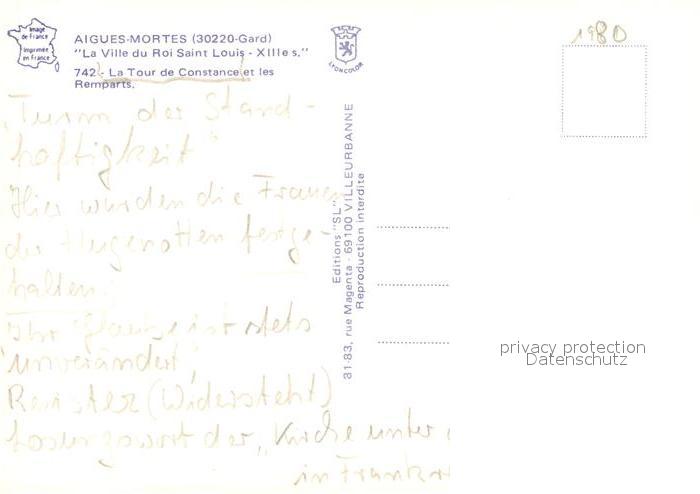 Image
de France
Imprimée
en France
AIGUES-MORTES (30220-Gard)
"La Ville du Roi Saint Louis - XIIIe s."
742 - La Tour de Constance et les
Remparts.
LYONCOLOR
1980
"Turm der Stand-
haftigkeit"
Hier wurden die Frauen
der Hugenotten festge-
halten.
Ihr Glaube ist stets
unverändert,
(Widersteht)
Losungswort der "Kirche unter
in Frankr
Editions "SL"
81-83, rue Magenta - 69100 VILLEURBANNE
Reproduction interdite
privacy protection
Datenschutz